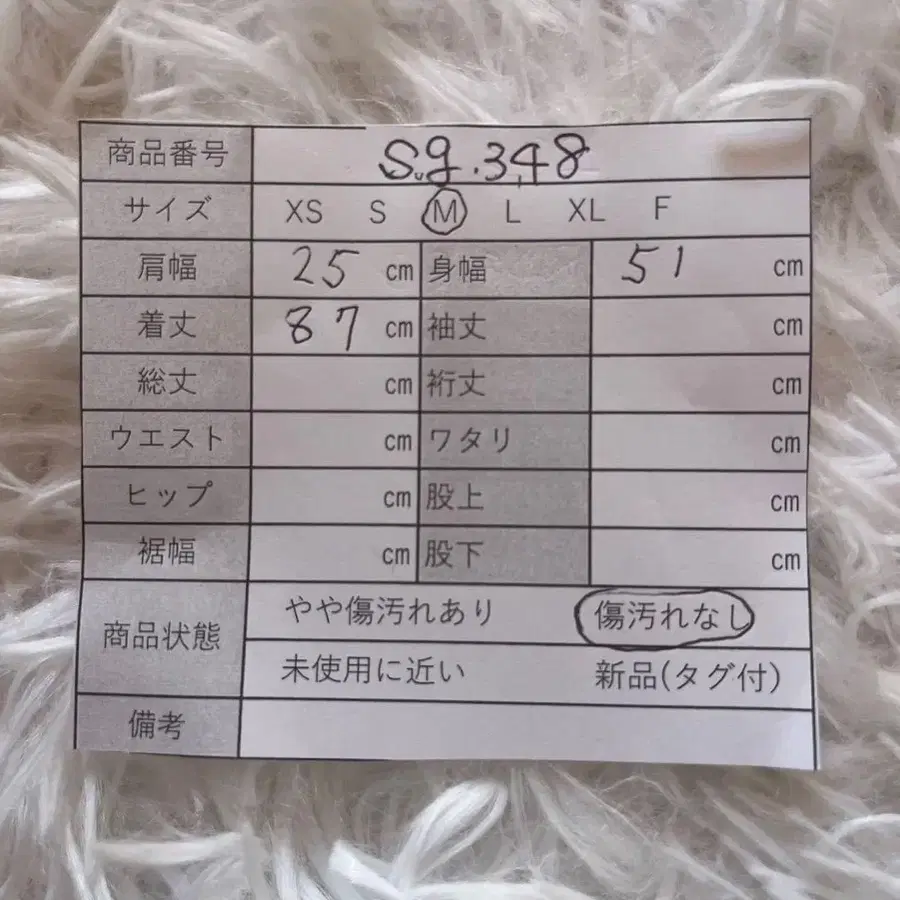 商品番号 s.g.348
サイズ XS S M L XL F
肩幅 25 cm 身幅 51 cm
着丈 87 cm 袖丈 cm
総丈 cm 裄丈 cm
ウエスト cm ワタリ cm
ヒップ cm 股上 cm
裾幅 cm 股下 cm
商品状態 やや傷汚れあり 傷汚れなし
未使用に近い 新品(タグ付)
備考